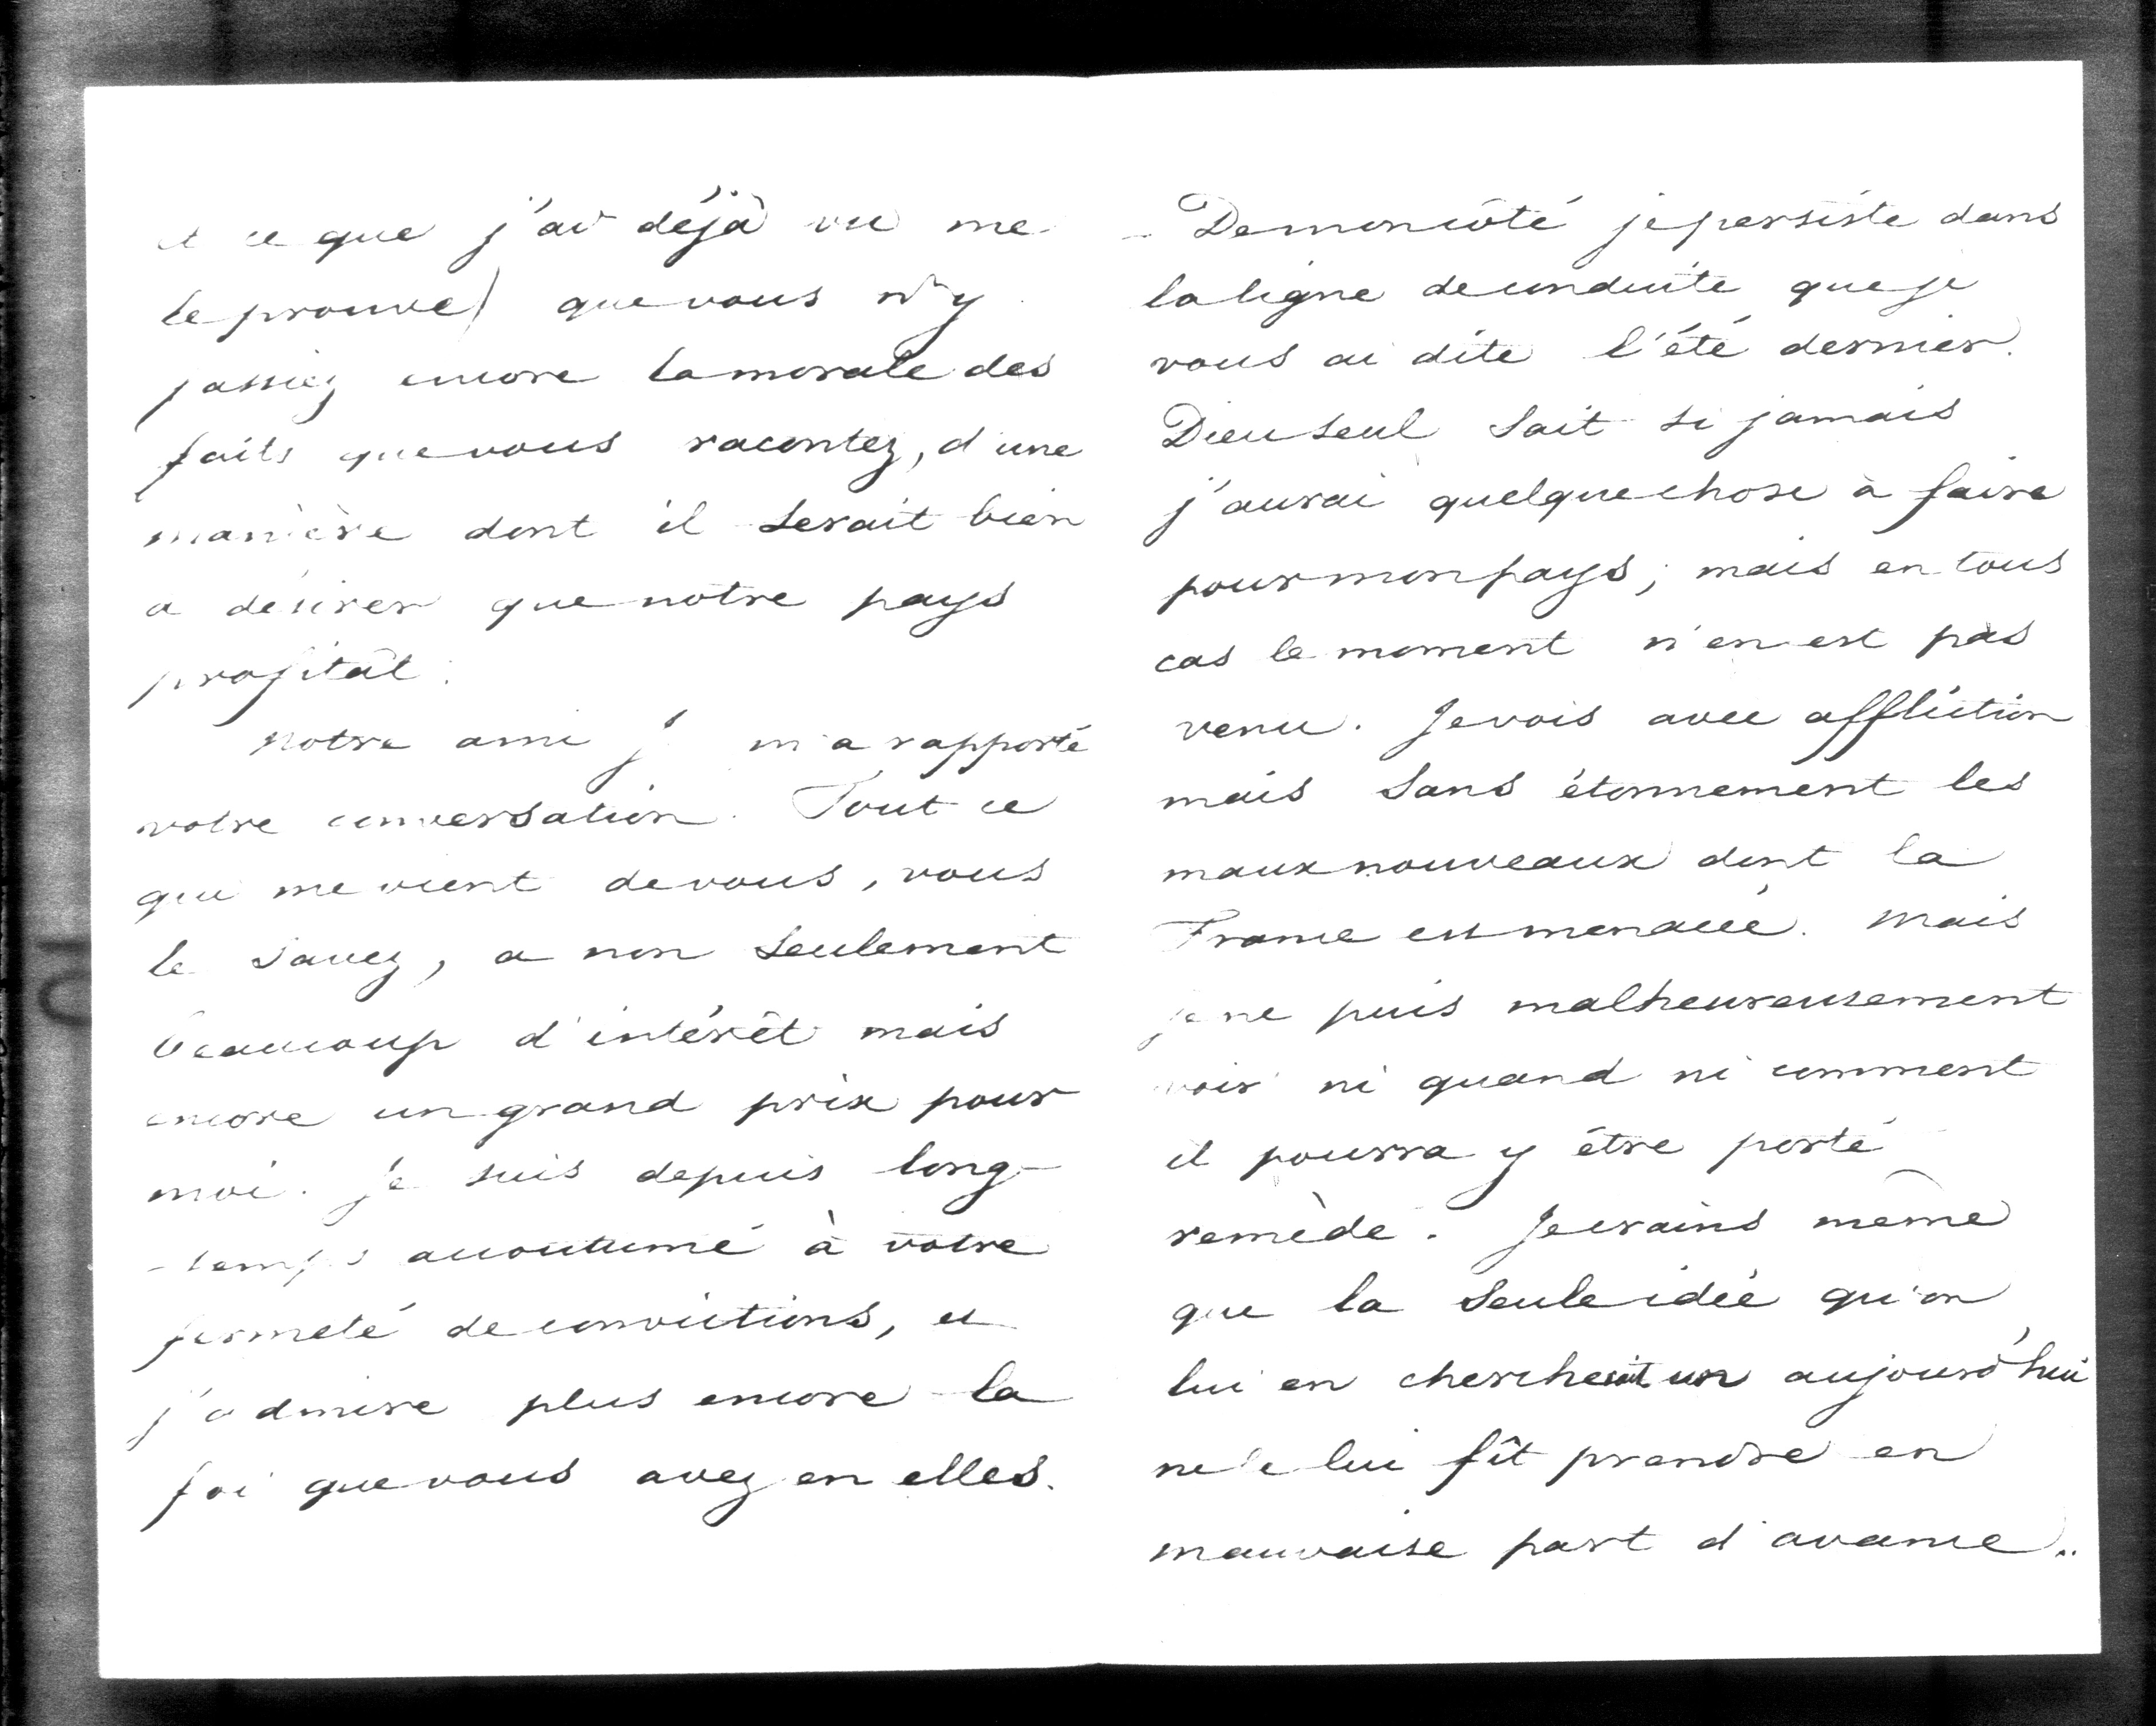 et ce que j'ai déjà vu me
le prouve) que vous n'y
fassiez encore la morale des
faits que vous racontez, d'une
manière dont il serait bien
à désirer que notre pays
profitât.
Notre ami J. m'a rapporté
votre conversation. Tout ce
qui me vient de vous, vous
le savez, a non seulement
beaucoup d'intérêt mais
encore un grand prix pour
moi. Je suis depuis long-
-temps accoutumé à votre
fermeté de convictions, et
j'admire plus encore la
foi que vous avez en elles.
- De mon côté je persiste dans
la ligne de conduite que je
vous ai dite l'été dernier.
Dieu seul sait si jamais
j'aurai quelque chose à faire
pour mon pays; mais en tous
cas le moment n'en est pas
venu. Je vois avec affliction
mais sans étonnement les
maux nouveaux dont la
France est menacée. Mais
je ne puis malheureusement
voir ni quand ni comment
il pourra y être porté
remède. Je crains même
que la seule idée qu'on
lui en cherchait un aujourd'hui
ne le lui fît prendre en
mauvaise part d'avance..